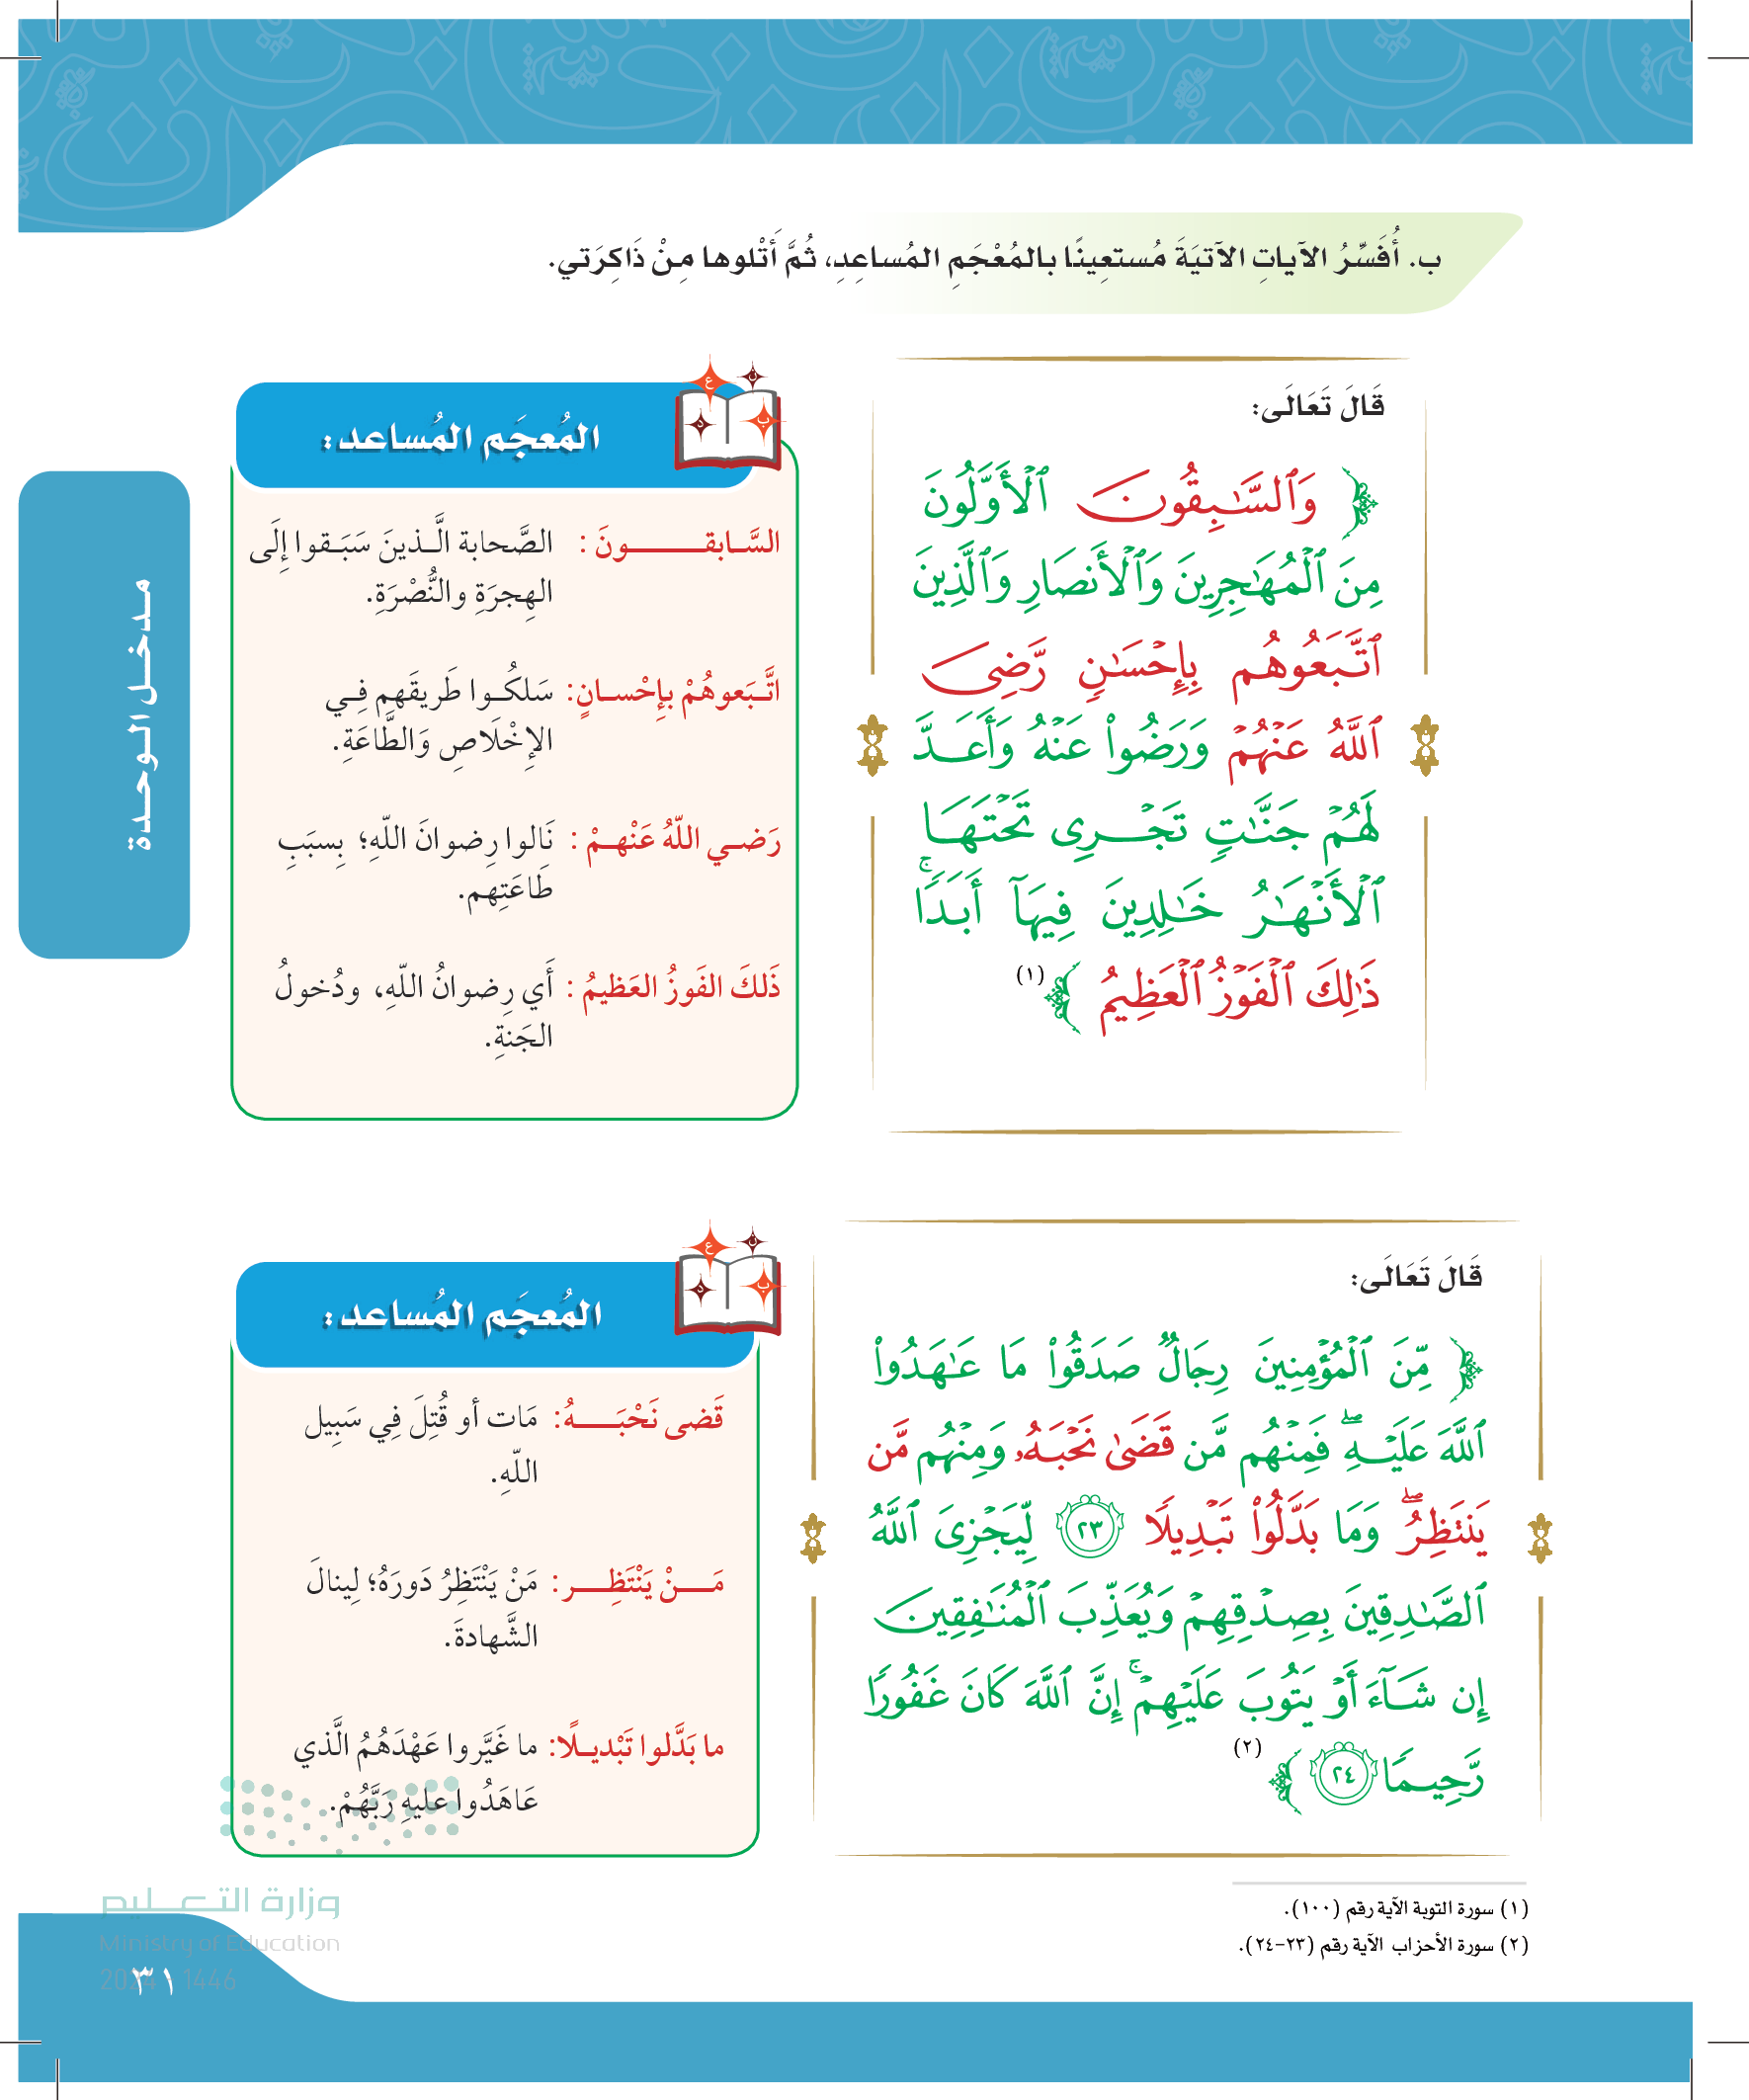 ب. أُفَسِّرُ الآياتِ الآتيَةَ مُستعِينًا بالمُعْجَمِ المُساعِدِ، ثُمَّ أَتْلوها مِنْ ذَاكِرَتي.
قَالَ تَعَالَى:
﴿ وَٱلسَّـٰبِقُونَ ٱلْأَوَّلُونَ
مِنَ ٱلْمُهَـٰجِرِينَ وَٱلْأَنصَارِ وَٱلَّذِينَ
ٱتَّبَعُوهُم بِإِحْسَـٰنٍ رَّضِىَ
ٱللَّهُ عَنْهُمْ وَرَضُوا۟ عَنْهُ وَأَعَدَّ
لَهُمْ جَنَّـٰتٍ تَجْرِى تَحْتَهَا
ٱلْأَنْهَـٰرُ خَـٰلِدِينَ فِيهَآ أَبَدًا ۚ
ذَٰلِكَ ٱلْفَوْزُ ٱلْعَظِيمُ ﴾ (١)
المُعجَم المُساعد:
السَّـابقـــــونَ : الصَّحابة الَّـذينَ سَبَـقوا إِلَى
الهِجرَةِ والنُّصْرَةِ.
اتَّـبَعوهُمْ بإِحْسـانٍ: سَلكُـوا طَريقَهم فِـي
الإخْلَاصِ وَالطَّاعَةِ.
رَضـي اللّهُ عَنْهـمْ : نَالوا رِضوانَ اللّهِ؛ بِسبَبِ
طَاعَتِهم.
ذَلكَ الفَوزُ العَظيمُ : أَي رِضوانُ اللّهِ، ودُخولُ
الجَنةِ.
مدخل الوحدة
قَالَ تَعَالَى:
﴿ مِّنَ ٱلْمُؤْمِنِينَ رِجَالٌ صَدَقُوا۟ مَا عَـٰهَدُوا۟
ٱللَّهَ عَلَيْهِ ۖ فَمِنْهُم مَّن قَضَىٰ نَحْبَهُۥ وَمِنْهُم مَّن
يَنتَظِرُ ۖ وَمَا بَدَّلُوا۟ تَبْدِيلًا ٢٣ لِّيَجْزِىَ ٱللَّهُ
ٱلصَّـٰدِقِينَ بِصِدْقِهِمْ وَيُعَذِّبَ ٱلْمُنَـٰفِقِينَ
إِن شَآءَ أَوْ يَتُوبَ عَلَيْهِمْ ۚ إِنَّ ٱللَّهَ كَانَ غَفُورًا
رَّحِيمًا ٢٤ ﴾ (٢)
المُعجَم المُساعد:
قَضى نَحْبَــهُ: مَات أو قُتِلَ فِي سَبِيل
اللّهِ.
مَــنْ يَنْتَظِــر: مَنْ يَنْتَظِرُ دَورَهُ؛ لِينالَ
الشَّهادةَ.
ما بَدَّلوا تَبْديـلًا: ما غَيَّروا عَهْدَهُمُ الَّذي
عَاهَدُوا عليهِ رَبَّهُمْ.
(١) سورة التوبة الآية رقم (١٠٠).
(٢) سورة الأحزاب الآية رقم (٢٣-٢٤).
وزارة التعليم
Ministry of Education
2024 - 1446
٣١